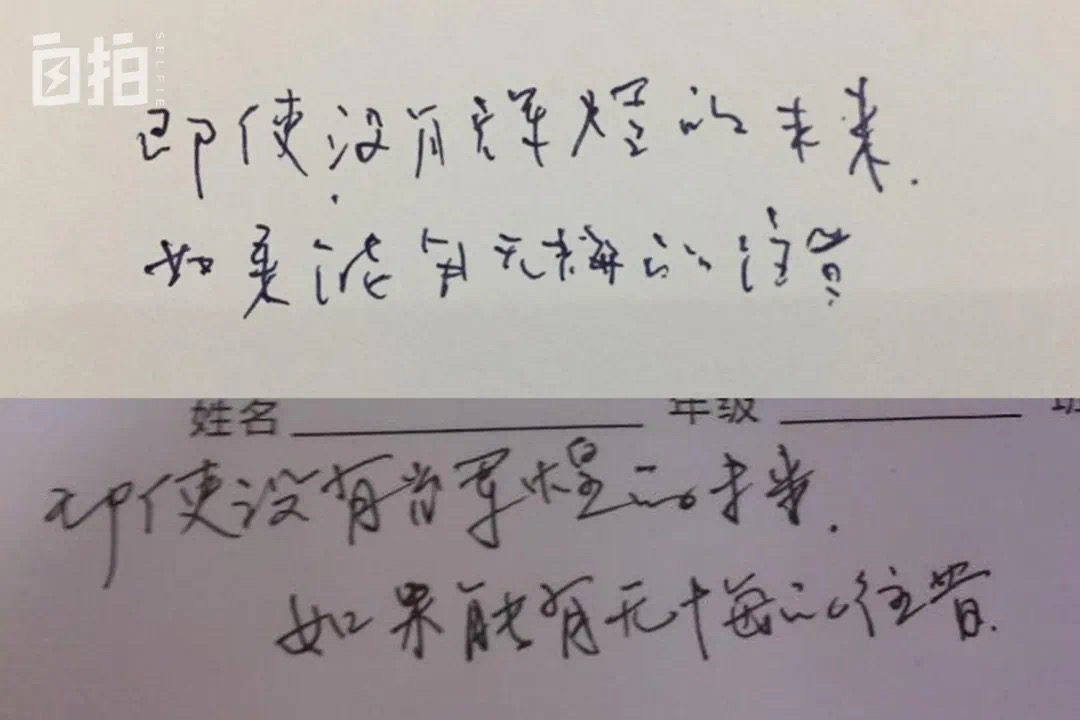 自拍
SELFIE
即使没有辉煌的未来.
如果能有无悔的往昔
姓名 年级 班
即使没有辉煌的未来.
如果能有无悔的往昔.